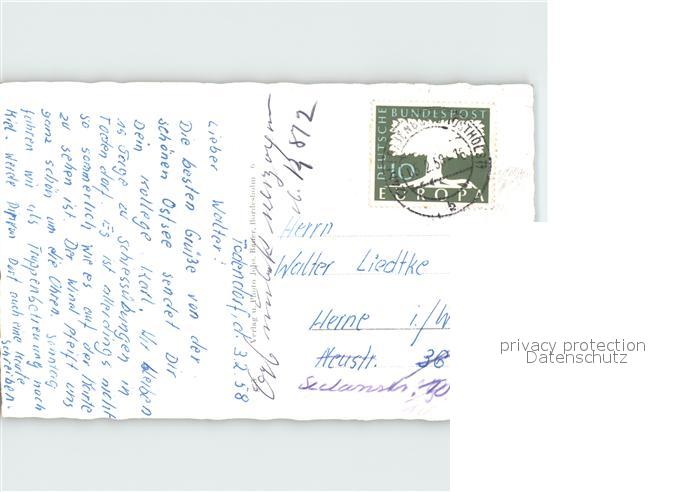 Todendorf, d. 3.2.58
Lieber Walter!
Die besten Grüße von der
schönen Ostsee sendet Dir
Dein Kollege Karl. Wir
16 Tage zu Schiessübungen in
Todendorf. Es ist allerdings nicht
so sommerlich wie es auf der Karte
zu sehen ist. Der Wind pfeift uns
ganz schön um die Ohren. Sonntag
fuhren wir als Truppenbetreuung nach
Kiel. Werde Dort noch eine Karte
schreiben.
Verlag u. Photo Jahn, Bordesholm
DEUTSCHE BUNDESPOST
10
EUROPA
Herrn
Walter Liedtke
Herne i./W
Neustr. 38
privacy protection
Datenschutz